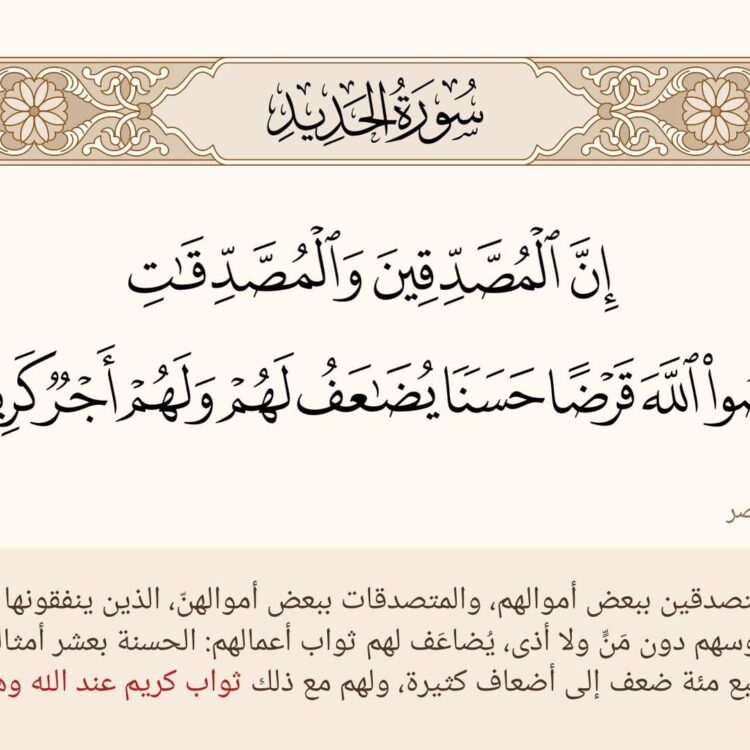 سُورَةُ الحَدِيدِ
إِنَّ ٱلْمُصَّدِّقِينَ وَٱلْمُصَّدِّقَٰتِ
ٱللَّهَ قَرْضًا حَسَنٗا يُضَٰعَفُ لَهُمْ وَلَهُمْ أَجْرٞ
ببعض أموالهم، والمتصدقات ببعض أموالهنّ، الذين ينفقونها
دون مَنٍّ ولا أذى، يُضاعَف لهم ثواب أعمالهم: الحسنة بعشر
مئة ضعف إلى أضعاف كثيرة، ولهم مع ذلك ثواب كريم عند الله